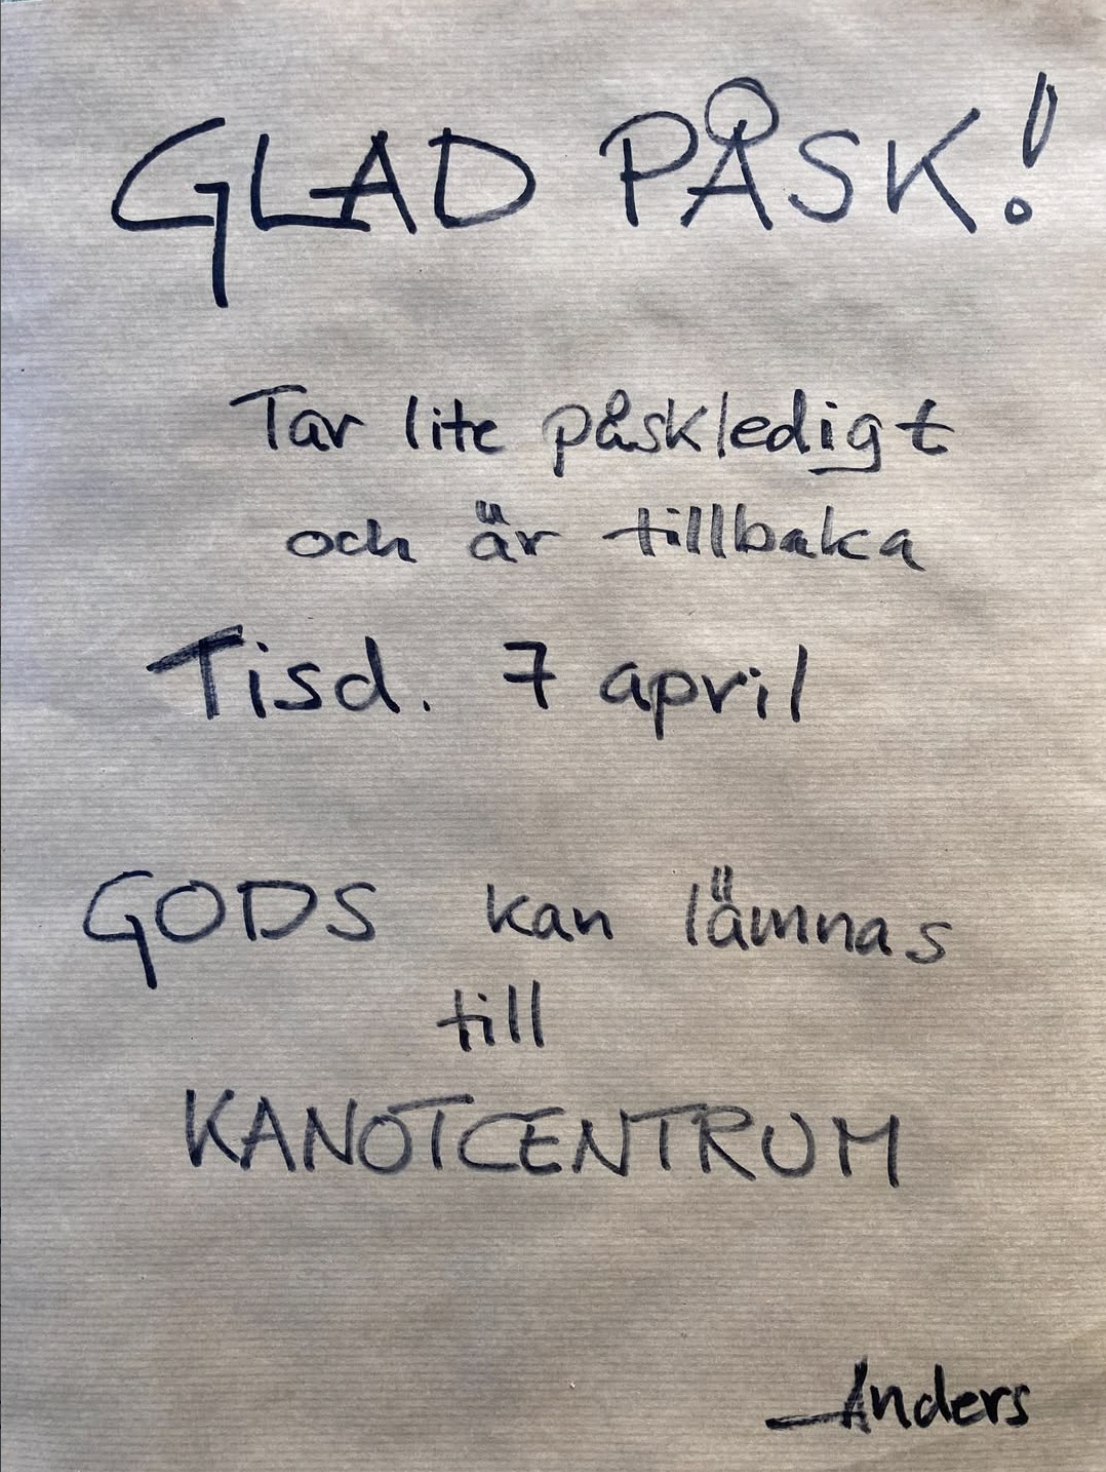 GLAD PÅSK!
Tar lite påskledigt
och är tillbaka
Tisd. 7 april
GODS kan lämnas
till
KANOTCENTRUM
Anders